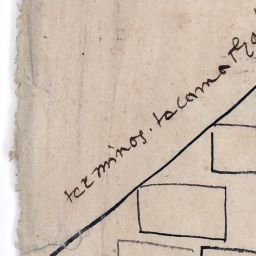 terminos. tacama